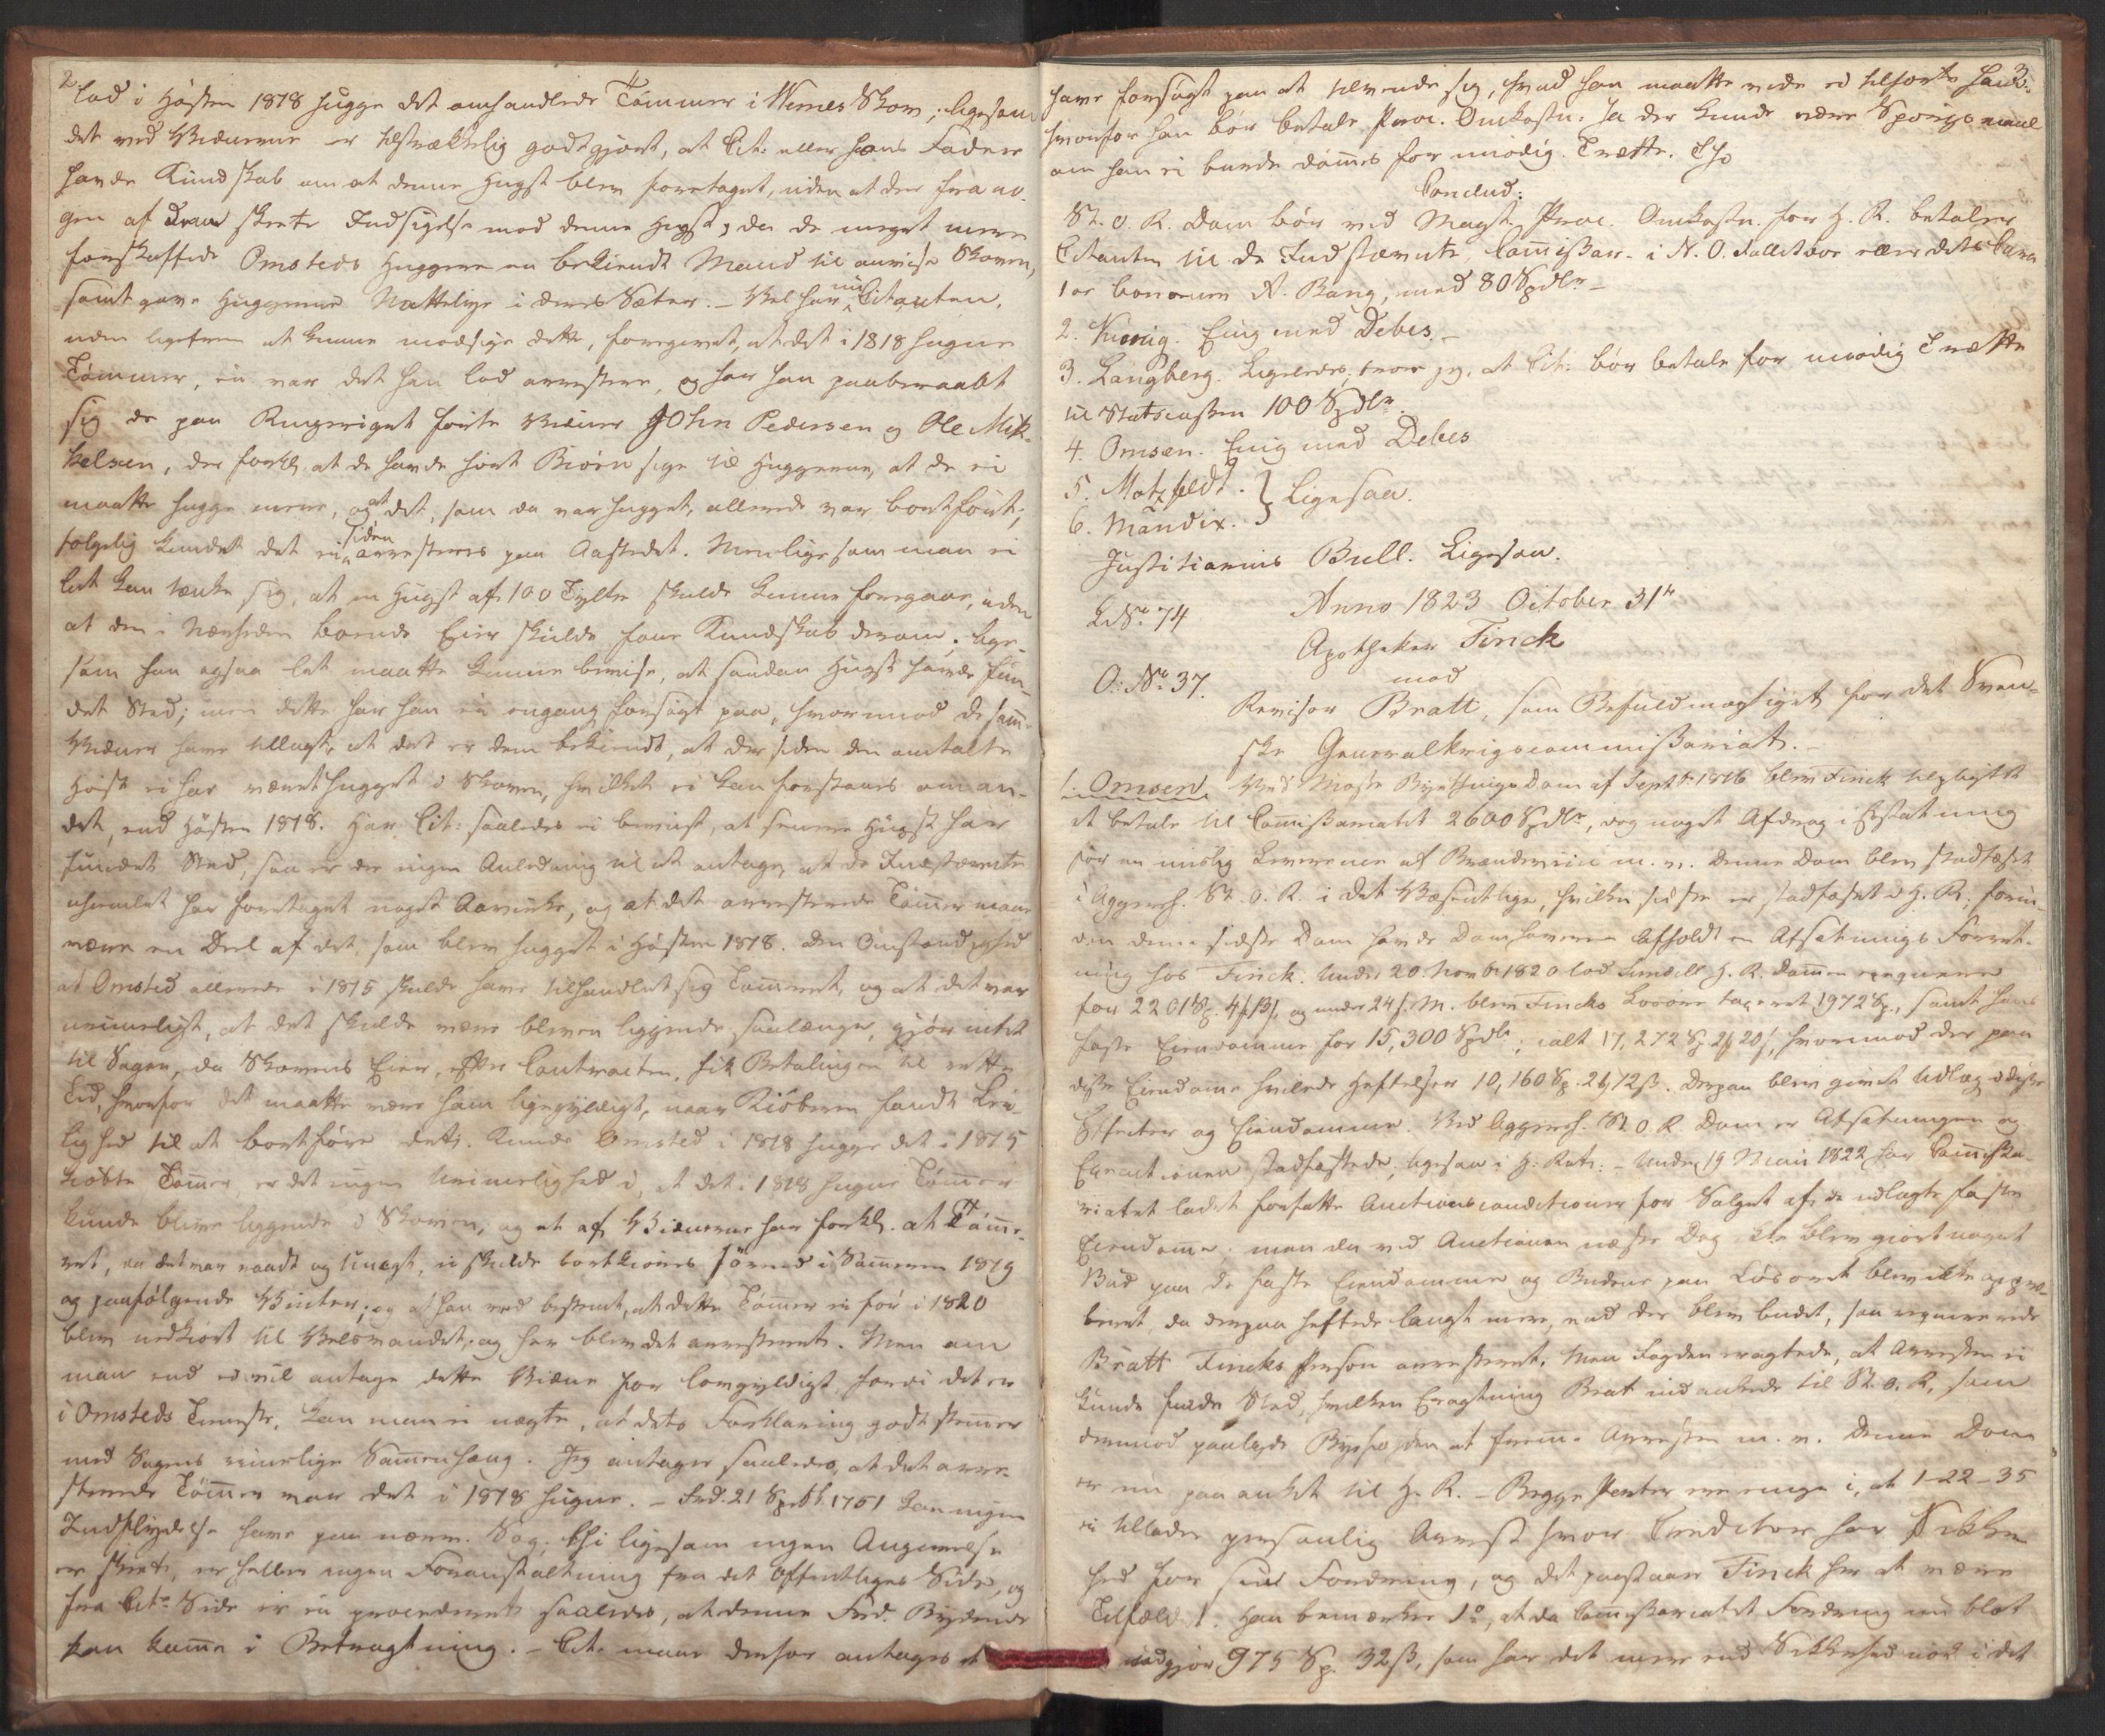 2
lod i Hösten 1818 hugge det omhandlede Tömmer i Nernes Skov; ligesom
det ved Vidnerne er tilstrækkelig godtgjort, at Cit: eller hans Fader
havde Kundskab om at denne Hugst blev foretaget, uden at der fra no-
gen af dem skeete Indsigelse mod denne Hugst, da de meget mere
forskaffede Omsteds Huggere en bekiendt Mand til at anvise Skoven,
samt gave Huggerne Natteleye i deres Sæter. - Vel har nu Citanten,
uden ligefrem at kunne modsige dette, foregivet, at det i 1818 hugne
Tömmer, ei var det han lod arrestere, og har han paaberaabt
sig de paa Ringeriget förte Vidner John Pedersen og Ole Mik-
kelsen, der forkl. at de havde hört Biörn sige til Huggerne, at de ei
maatte hugge mere, og at det, som da var hugget, allerede var bortfört;
fölgelig kunde det ei siden arresteres paa Aastedet. Men ligesom man ei
let kan tænke sig, at en Hugst af 100 Tylter skulde kunne foregaae, uden
at den i Nærheden boende Eier skulde faae Kundskab derom; lige-
som han ogsaa let maatte kunne bevise, at saadan Hugst havde fun-
det Sted; men dette har han ei engang forsögt paa, hvormod de samme
Vidner have tillagt, at det er dem bekiendt, at der siden den omtalte
Höst ei har været hugget i Skoven, hvilket ei kan forstaaes om an-
det, end Hösten 1818. Har Cit: saaledes ei beviist, at senere Hugst har
fundet Sted, saa er der ingen Anledning til at antage, at de Indstævnte
uhiemlet har foretaget noget Aavirke, og at det arresterede Tömmer maae
være en Deel af det, som blev hugget i Hösten 1818. Den Omstændighed
at Omsted allerede i 1815 skulde have tilhandlet sig Tömmeret, og at det var
urimeligt, at det skulde være bleven liggende saalænge, gjör intet
til Sagen, da Skovens Eier, efter Contracten, fik Betalingen til rette
Tid, hvorfor det maatte være ham ligegyldigt, naar Kiöberen fandt Lei-
lighed til at bortföre det. Kunde Omsted i 1818 hugge det i 1815
kiöbte Tömmer, er det ingen Urimelighed i, at det i 1818 hugne Tömmer
kunde blive liggende i Skoven, og at af Vidnerne har forkl. at Tömme-
ret, da det var raadt og tungt, ei skulde bortkiöres förend i Sommeren 1819
og paafölgende Vinter; og at han veed bestemt, at dette Tömmer ei för i 1820
blev nedkiört til Velsvandet, og her blev det arresteret. Men om
man end ei vil antage dette Vidne for lovgyldigt, fordi det er
i Omsteds Tieneste, kan man ei nægte, at dets Forklaring godt stemmer
med Sagens rimelige Sammenhæng. Jeg antager saaledes, at det arre-
sterede Tömmer var det i 1818 hugne. - Frd. 21 Septbr. 1751 kan ingen
Indflydelse have paa nærv. Sag; thi ligesom ingen Angivelse
er skeet, er heller ingen Foranstaltning fra det Offentliges Side, og
fra Cit:s Side er ei procederet saaledes, at denne Frd. Bydende
kan komme i Betragtning. - Cit. maae derfor antages at
3
have forsögt paa at tilvende sig, hvad han maatte vide ei tilhörte ham:
hvorfor han bör betale Proc. Omkostn. Ja der kunde være Spörgsmaal
om han ei burde dömmes for unödig Trætte. Thi
Conclud:
St. O. R. Dom bör ved Magt. Proc. Omkostn. for H. R. betaler
Citanten til de Indstævnte, Commissair. i N. O. Fallitboe eller dets Cura
tor bonorum A. Bang, med 80 Spdlr. -
2. Kierrig. Enig med Debes. -
3. Langberg. Ligeledes; troer jeg, at Cit: bör betale for unödig Trætte
til Statscassen 100 Spdlr.
4. Omsen. Enig med Debes
5. Motzfeldt. } Ligesaa.
6. Mandix.
Justitiarius Bull. Ligesaa.
L No. 74 Anno 1823 October 31te
Apotheker Finck
O: No. 37. mod
Revisor Bratt, som Befuldmægtiget for det Sven-
ske Generalkrigscommissariat. -
1. Omsen. Ved Mosse Byethings Dom af Septbr. 1816 blev Finck tilpligtet
at betale til Commissariatet 2600 Spdlr., dog noget Afdrag i Erstatning
for en mislig Leverence af Brændeviin m. v. Denne Dom blev stadfæstet
i Aggersh. St. O. R. i det Væsentlige, hvilken sidste er stadfæstet i H. R; forin-
den denne sidste Dom havde Domhaveren afholdt en Afsætnings Forret-
ning hos Finck. Under 20. Novbr. 1820 lod Limdell H. R. Dommen exequere
for 2201 Sp. 4 ß 13 ß, og under 24 s. M. blev Fincks Lösöre taxeret 1972 Sp., samt hans
faste Eiendomme for 15,300 Spdlr.; ialt 17,272 Sp. 2 ß 20 ß, hvorimod der paa
disse Eiendomme hvilede Heftelser 10,160 Sp. 2 ß 12 ß. Derpaa blev givet Udlæg i disse
Effecter og Eiendomme. Ved Aggersh. St. O. R. Dom er Afsætningen og
Executionen stadfæstede, ligesaa i H: Ret: - Under 19 Maii 1822 har Commissa-
riatet ladet forfatte Auctionsconditioner for Salget af de udlagte faste
Eiendomme. men da ved Auctionen næste Dag ikke blev giort noget
Bud paa de faste Eiendomme og Budene paa Lösöret blev ikke appro-
beret, da derpaa heftede langt mere, end der blev budet, saa requirerede
Bratt Fincks Person arresteret. Men Fogden eragtede, at Arresten ei
kunde finde Sted, hvilken Eragtning Brat indankede til St. O. R, som
derimod paalagde Byefogden at fremme Arresten m. v. Denne Dom
er nu paaanket til H. R. - Begge Parter ere enige i, at 1-22-35
ei tillader personlig Arrest hvor Creditor har Sikker
hed for sin Fordring, og det paastaaer Finck her at være
Tilfældet. Han bemærker 1o, at da Commissariatets Fordring nu blot
udgjör 975 Sp. 32 ß, som har det mere end Sikkerhed nok i det